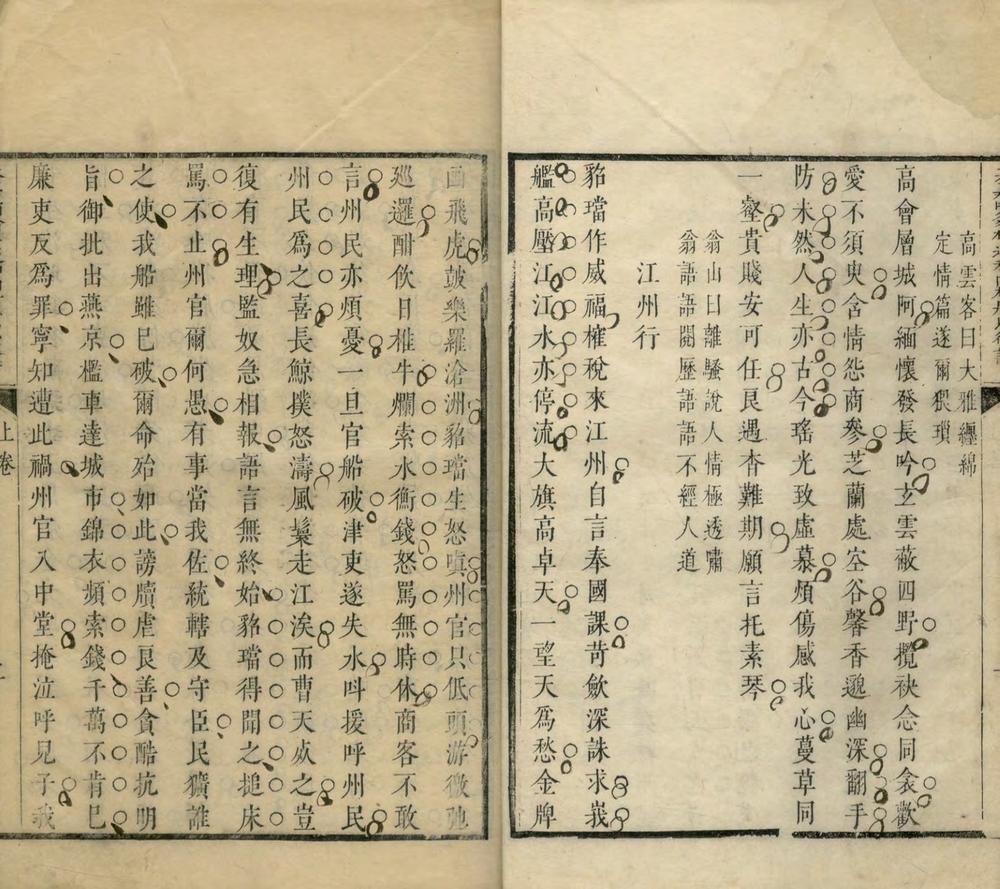 高雲客曰大雅纒綿
定情篇遂爾猥瑣
高會層城阿緬懷發長吟玄雲蔽四野攬袂念同衾歡
愛不須臾含情怨商參芝蘭處空谷馨香邈幽深翻手
防未然人生亦古今瑤光致虛慕煩傷感我心蔓草同
一壑貴賤安可任良遇杳難期願言托素琴
翁山曰離騷說人情極透嘯
翁語語閱歷語語不經人道
江州行
貂璫作威福榷稅來江州自言奉國課苛斂深誅求峩
艦高壓江江水亦停流大旗高卓天一望天爲愁金牌
畫飛虎鼓樂羅滄洲貂璫生怒嗔州官只低頭游徼弛
廵邏酣飲日椎牛爛索水衡錢怒罵無時休商客不敢
言州民亦煩憂一旦官船破津吏遂失水呌援呼州民
州民爲之喜長鯨撲怒濤風鬟走江涘而曹天歼之豈
復有生理監奴急相報語言無終始貂璫得聞之搥床
罵不止州官爾何愚有事當我佐統轄及守臣民獷誰
之使我船雖已破爾命殆如此謗牘虐良善貪酷抗明
旨御批出燕京檻車達城市錦衣頻索錢千萬不肯巳
廉吏反爲罪寧知遭此禍州官入中堂掩泣呼兒子我
上卷